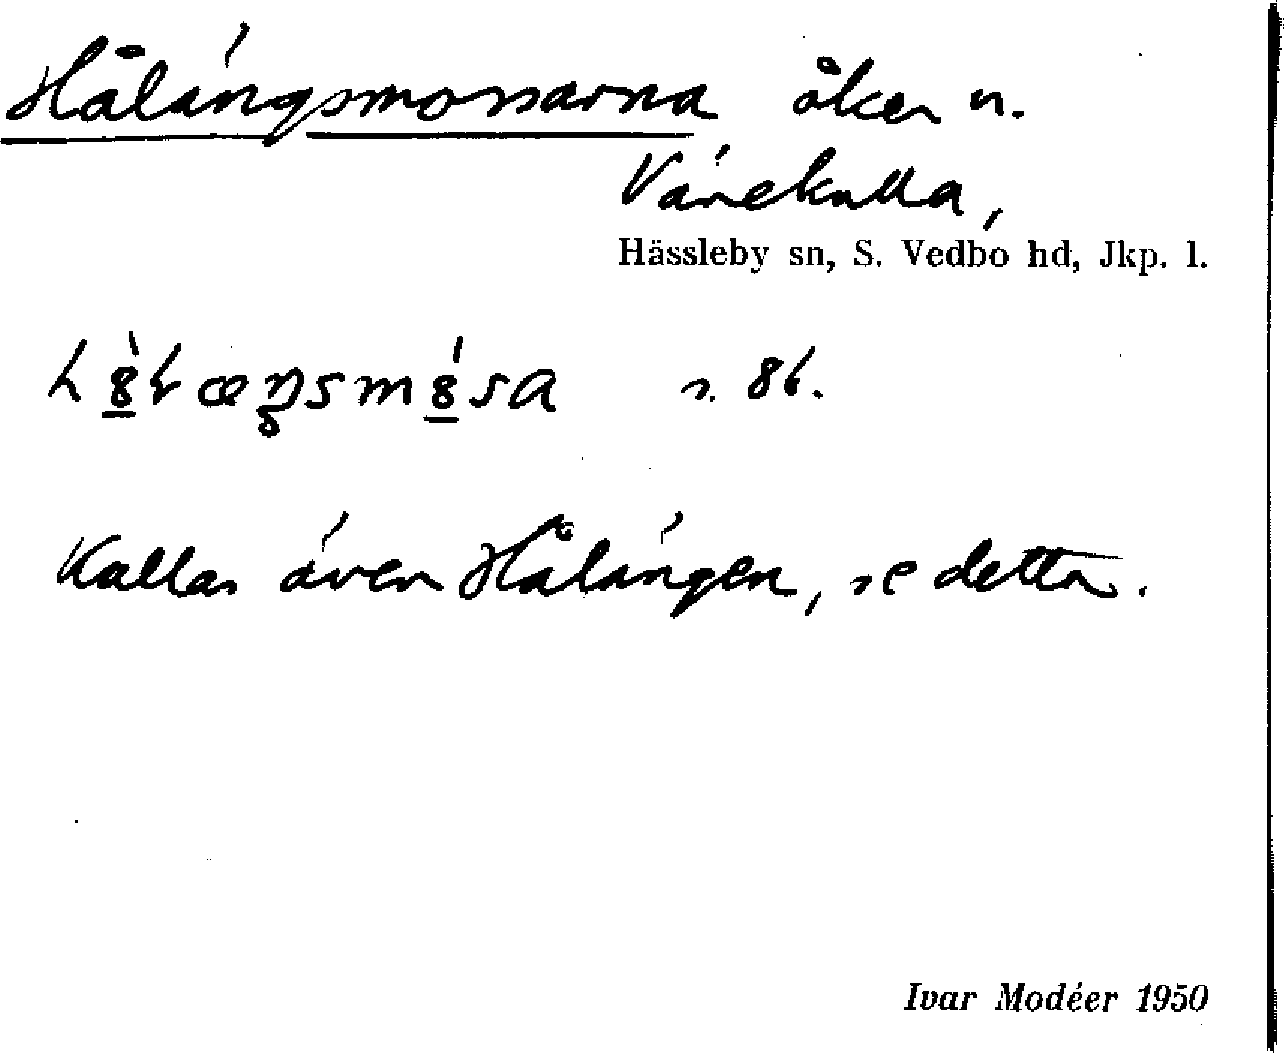 Hålängsmossarna åker n.
Vänekulla,
Hässleby sn, S. Vedbo hd, Jkp. l.
s. 86.
Kallas även Hålängen, se detta.
Ivar Modéer 1950